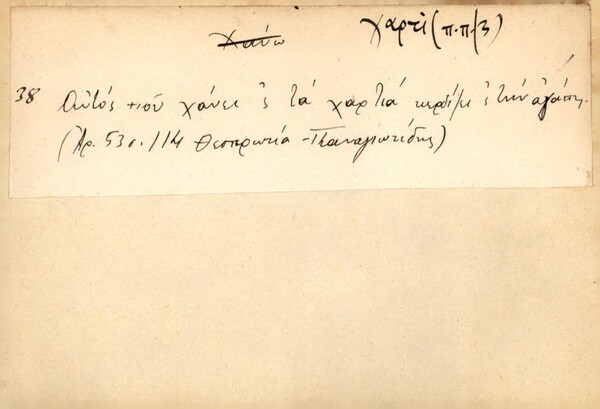 Χάνω χαρτί (π.π./3)
38 Αὐτός ποῦ χάνει 'ς τά χαρτιά κερδίζει 'ς τήν ἀγάπη.
(Ἀρ. 53 σ. 114 Θεσπρωτία - Παναγιωτίδης)